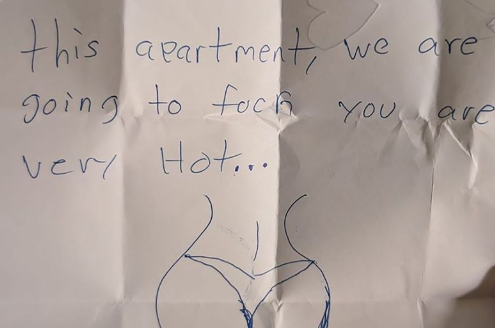 this apartment, we are
going to fuck you are
very Hot...